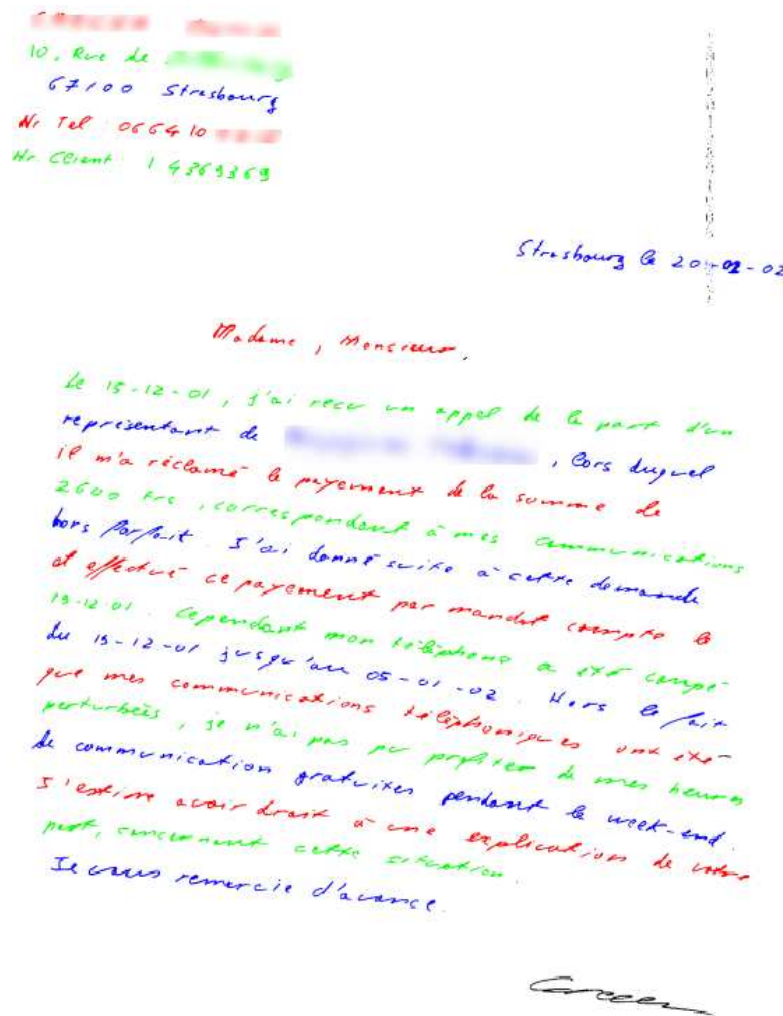 10, Rue de
67100 Strasbourg
Nr Tel : 066410
Nr. Client : 14369369
Strasbourg le 20-02-02
Madame, Monsieur,
Le 15-12-01, j'ai reçu un appel de la part d'un
représentant de , lors duquel
il m'a réclamé le payement de la somme de
2600 frs, correspondant à mes communications
hors forfait. J'ai donné suite à cette demande
et effectué ce payement par mandat compte le
19-12-01. Cependant mon téléphone a été coupé
du 15-12-01 jusqu'au 05-01-02. Hors le fait
que mes communications téléphoniques ont été
perturbées, je n'ai pas pu profiter de mes heures
de communication gratuites pendant le week-end.
J'estime avoir droit à une explication de votre
part, concernant cette situation.
Je vous remercie d'avance.